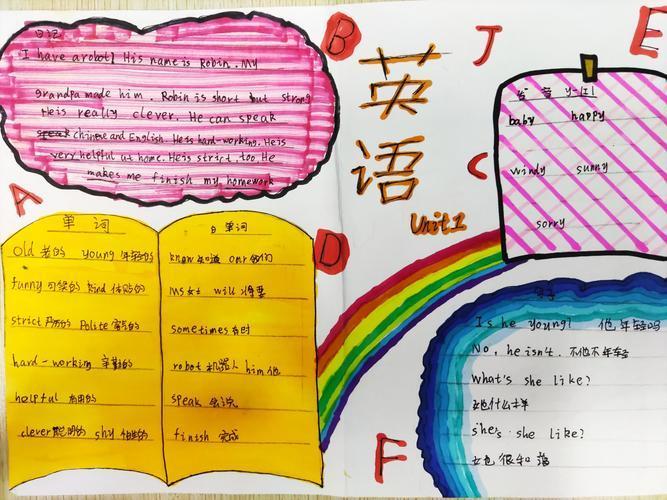 日记
I have a robot! His name is Robin. My
grandpa made him. Robin is short but strong
He is really clever. He can speak
chinese and English. He is hard-working. He is
very helpful at home. He is strict, too He
makes me finish my homework
A
B
C
D
E
F
J
英语
Unit1
y=[i]
baby happy
windy sunny
sorry
单词
old 老的 young 年轻的
funny 可笑的 kind 体贴的
strict 严厉的 Polite 客气的
hard-working 辛勤的
helpful 有用的
clever 聪明的 shy 怕羞的
日单词
know 知道 our 我们
Ms 女士 will 将要
sometimes 有时
robot 机器人 him 他
speak 会说
finish 完成
句子
Is he young? 他年轻吗
No, he isn't. 不他不年轻
What's she like?
她什么样
she's she like?
她很和蔼